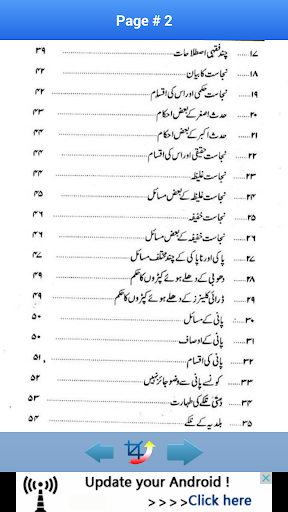 Page # 2
۱۷ ...... چند فقہی اصطلاحات ...... ۳۹
۱۸ ...... نجاست کا بیان ...... ۴۲
۱۹ ...... نجاست حکمی اور اس کی اقسام ...... ۴۲
۲۰ ...... حدث اصغر کے بعض احکام ...... ۴۳
۲۱ ...... حدث اکبر کے بعض احکام ...... ۴۴
۲۲ ...... نجاست حقیقی اور اس کی اقسام ...... ۴۴
۲۳ ...... نجاست غلیظہ ...... ۴۴
۲۴ ...... نجاست غلیظہ کے بعض مسائل ...... ۴۵
۲۵ ...... نجاست خفیفہ ...... ۴۶
۲۶ ...... نجاست خفیفہ کے بعض مسائل ...... ۴۶
۲۷ ...... پاکی اور ناپاکی کے چند مختلف مسائل ...... ۴۷
۲۸ ...... دھوبی کے دھلے ہوئے کپڑوں کا حکم ...... ۴۹
۲۹ ...... ڈرائی کلینرز کے دھلے ہوئے کپڑوں کا حکم ...... ۴۹
۳۰ ...... پانی کے مسائل ...... ۵۰
۳۱ ...... پانی کے اوصاف ...... ۵۰
۳۲ ...... پانی کی اقسام ...... ۵۱
۳۳ ...... کونسے پانی سے وضو جائز نہیں ...... ۵۲
۳۴ ...... دستی نلکے کی طہارت ...... ۵۳
۳۵ ...... بلدیہ کے نلکے ...... ۵۴
Update your Android !
> > > >Click here